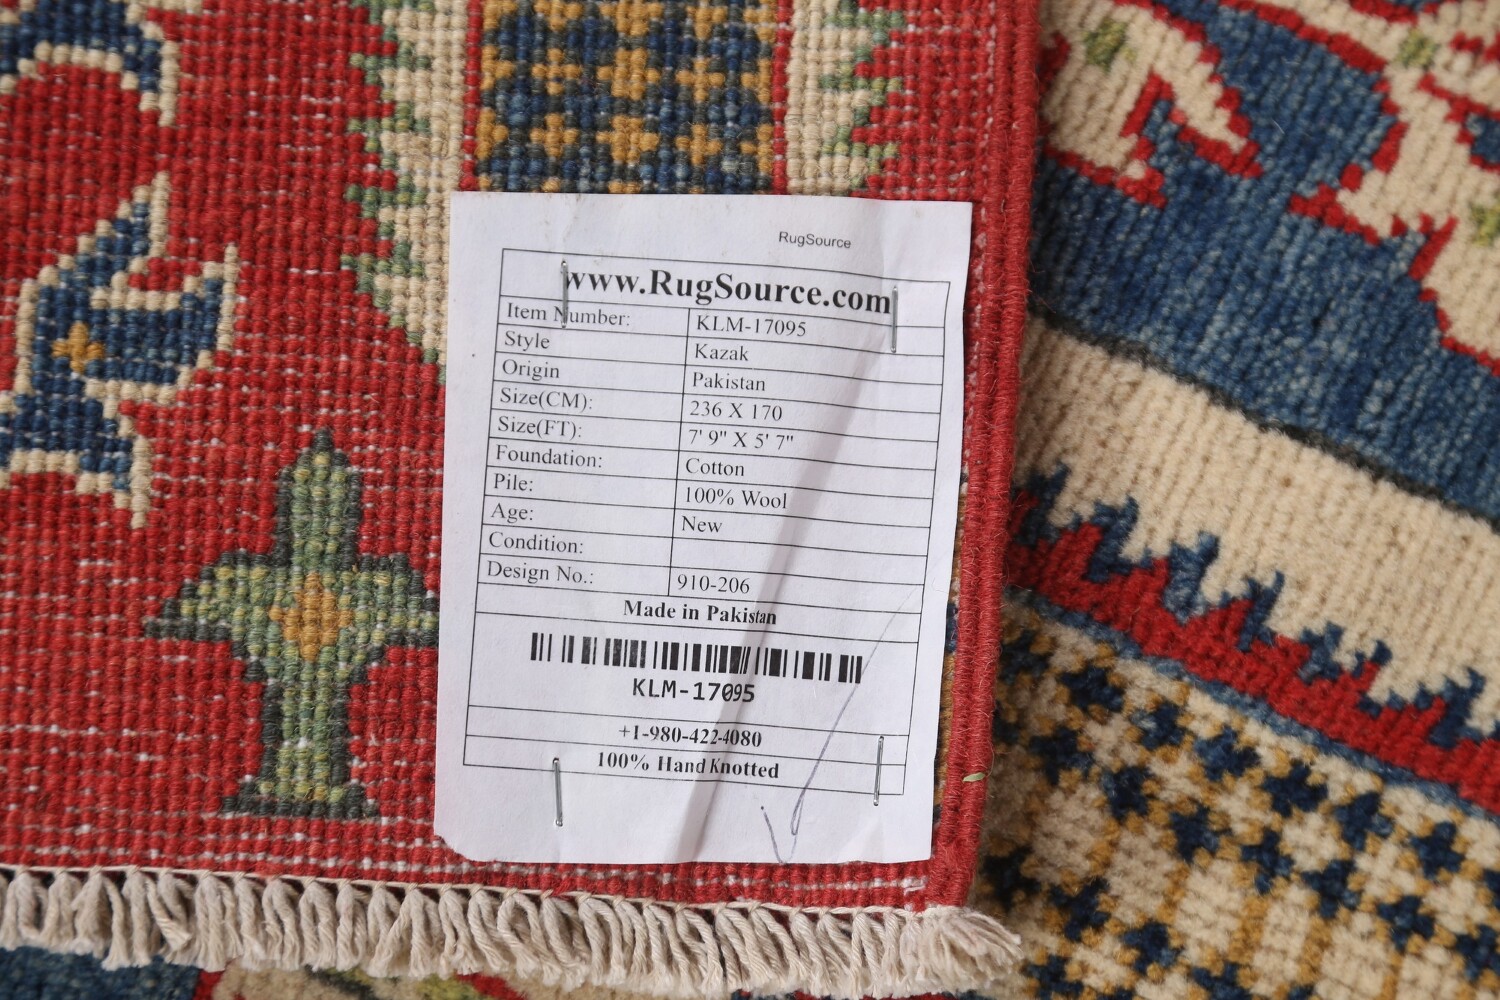 RugSource
www.RugSource.com
Item Number: KLM-17095
Style Kazak
Origin Pakistan
Size(CM): 236 X 170
Size(FT): 7' 9" X 5' 7"
Foundation: Cotton
Pile: 100% Wool
Age: New
Condition:
Design No.: 910-206
Made in Pakistan
KLM-17095
+1-980-422-4080
100% Hand Knotted